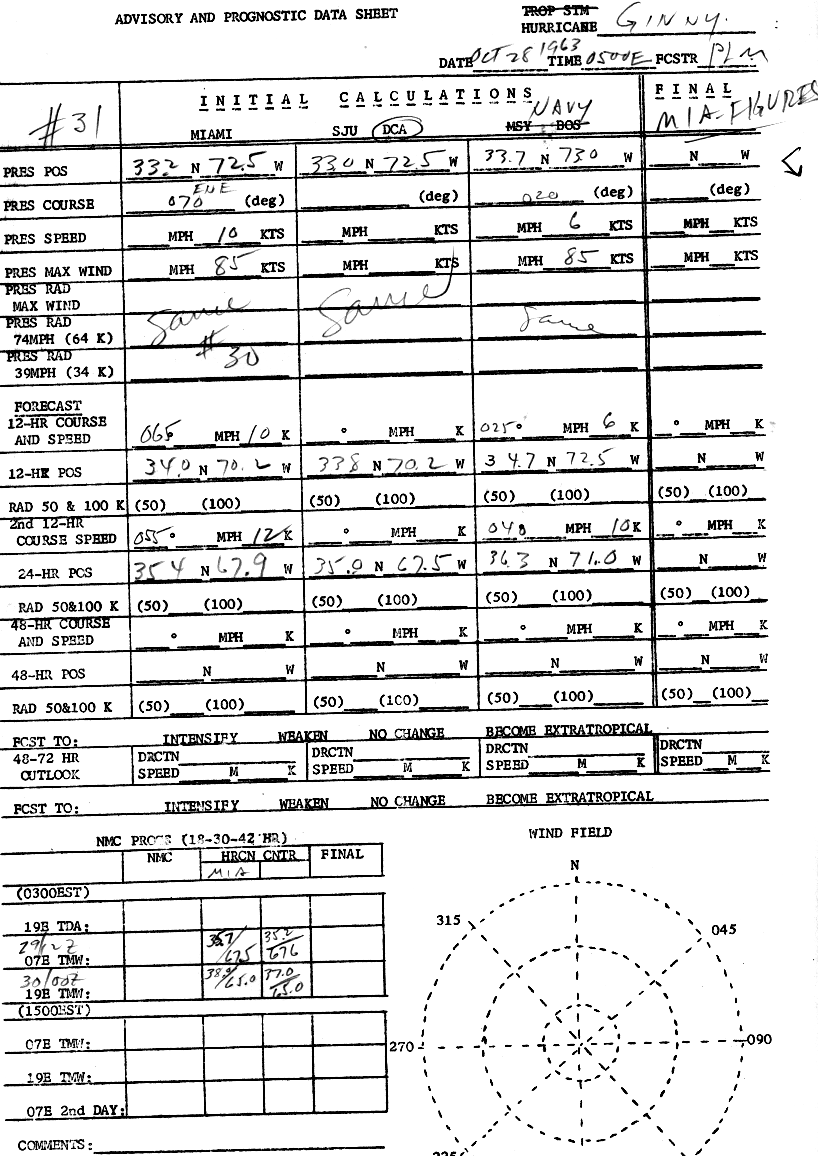 ADVISORY AND PROGNOSTIC DATA SHEET
TROP STM
HURRICANE GINNY.
DATE OCT 28 1963 TIME 0500E FCSTR PLM
#31
INITIAL CALCULATIONS FINAL
MIAMI SJU DCA MSY BOS NAVY MIA-FIGURES
PRES POS 33.2 N 72.5 W 33.0 N 72.5 W 33.7 N 73.0 W N W
PRES COURSE 070 ENE (deg) (deg) 020 (deg) (deg)
PRES SPEED MPH 10 KTS MPH KTS MPH 6 KTS MPH KTS
PRES MAX WIND MPH 85 KTS MPH KTS MPH 85 KTS MPH KTS
PRES RAD
MAX WIND
PRES RAD
74MPH (64 K) Same Same Same
PRES RAD #30
39MPH (34 K)
FORECAST
12-HR COURSE
AND SPEED 065 MPH 10 K ° MPH K 025° MPH 6 K ° MPH K
12-HR POS 34.0 N 70.2 W 33.8 N 70.2 W 34.7 N 72.5 W N W
RAD 50 & 100 K (50) (100) (50) (100) (50) (100) (50) (100)
2nd 12-HR
COURSE SPEED 055° MPH 12 K ° MPH K 048 MPH 10 K ° MPH K
24-HR POS 35.4 N 67.9 W 35.0 N 67.5 W 36.3 N 71.0 W N W
RAD 50&100 K (50) (100) (50) (100) (50) (100) (50) (100)
48-HR COURSE
AND SPEED ° MPH K ° MPH K ° MPH K ° MPH K
48-HR POS N W N W N W N W
RAD 50&100 K (50) (100) (50) (100) (50) (100) (50) (100)
FCST TO: INTENSIFY WEAKEN NO CHANGE BECOME EXTRATROPICAL
48-72 HR DRCTN DRCTN DRCTN DRCTN
OUTLOOK SPEED M K SPEED M K SPEED M K SPEED M K
FCST TO: INTENSIFY WEAKEN NO CHANGE BECOME EXTRATROPICAL
NMC PROGS (18-30-42 HR)
NMC HRCN CNTR FINAL
MIA
(0300EST)
19E TDA:
29/12Z
07E TMW: 67.5 35.2/67.6
30/00Z
19E TMW: 65.0 37.0/65.0
(1500EST)
07E TMW:
19E TMW:
07E 2nd DAY:
COMMENTS:
WIND FIELD
N
315 045
270 090
225